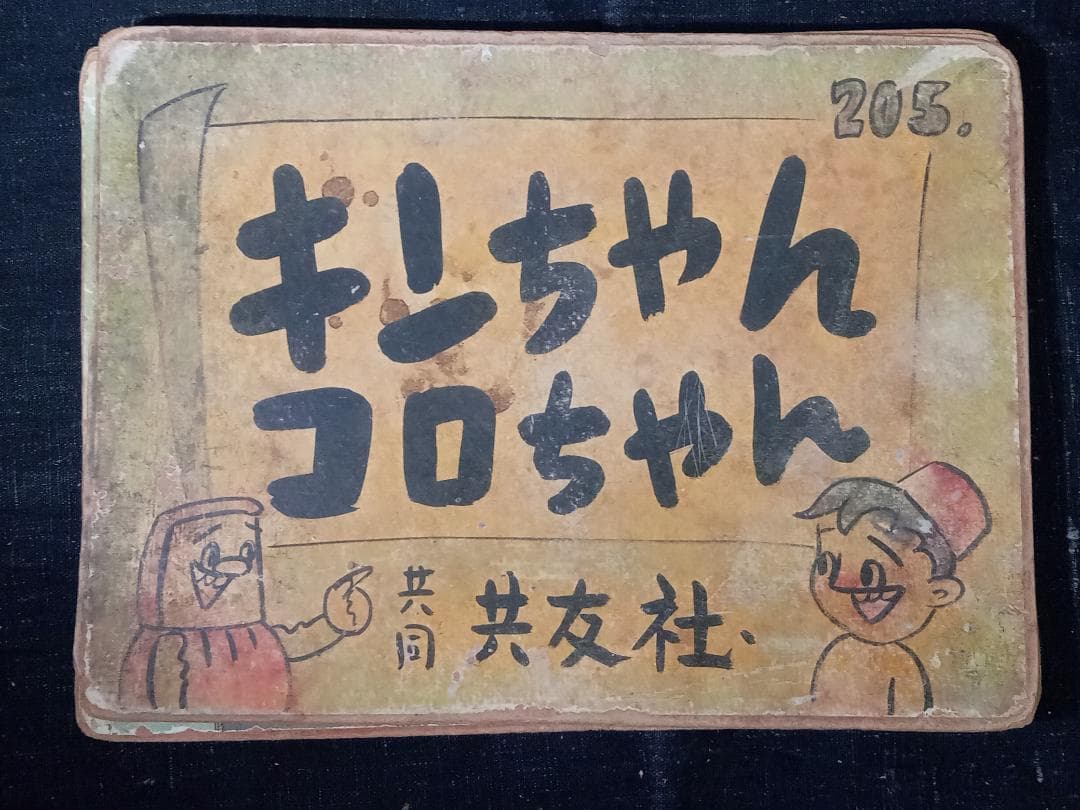 205.
キンちゃん
コロちゃん
共同 共友社、